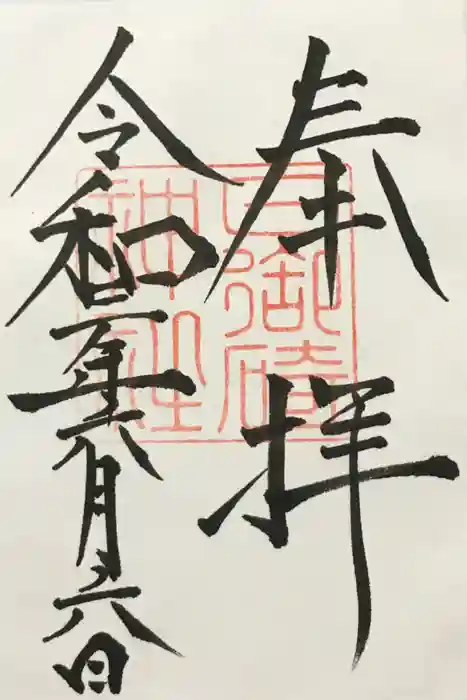 奉拝
日御碕
神社
令和年六月六日